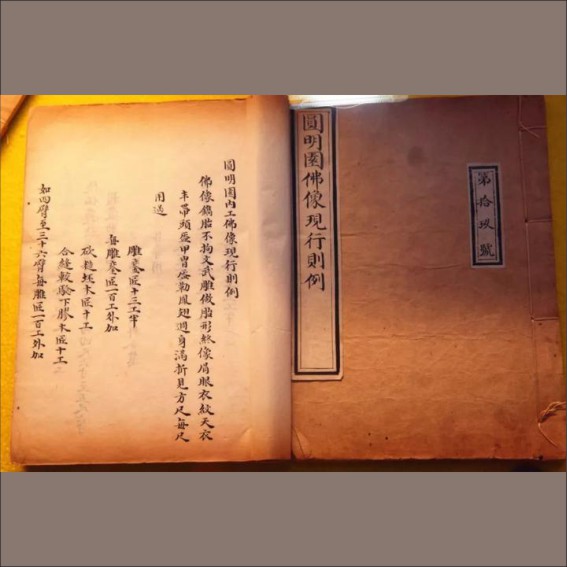 第拾玖號
圓明園佛像現行則例
圓明園內工佛像現行則例
佛像鐫胎不拘文武雕做胎形絲像眉眼衣紋天衣
羊帶頭盔甲冑盔勒鳳翅週身滿折見方尺每尺
用送
雕鑾匠十三工半
每雕鑾匠一百工外加
砍造坯木匠十工
合縫較驗下膠木匠十工
如四臂至三十六臂每雕匠一百工外加